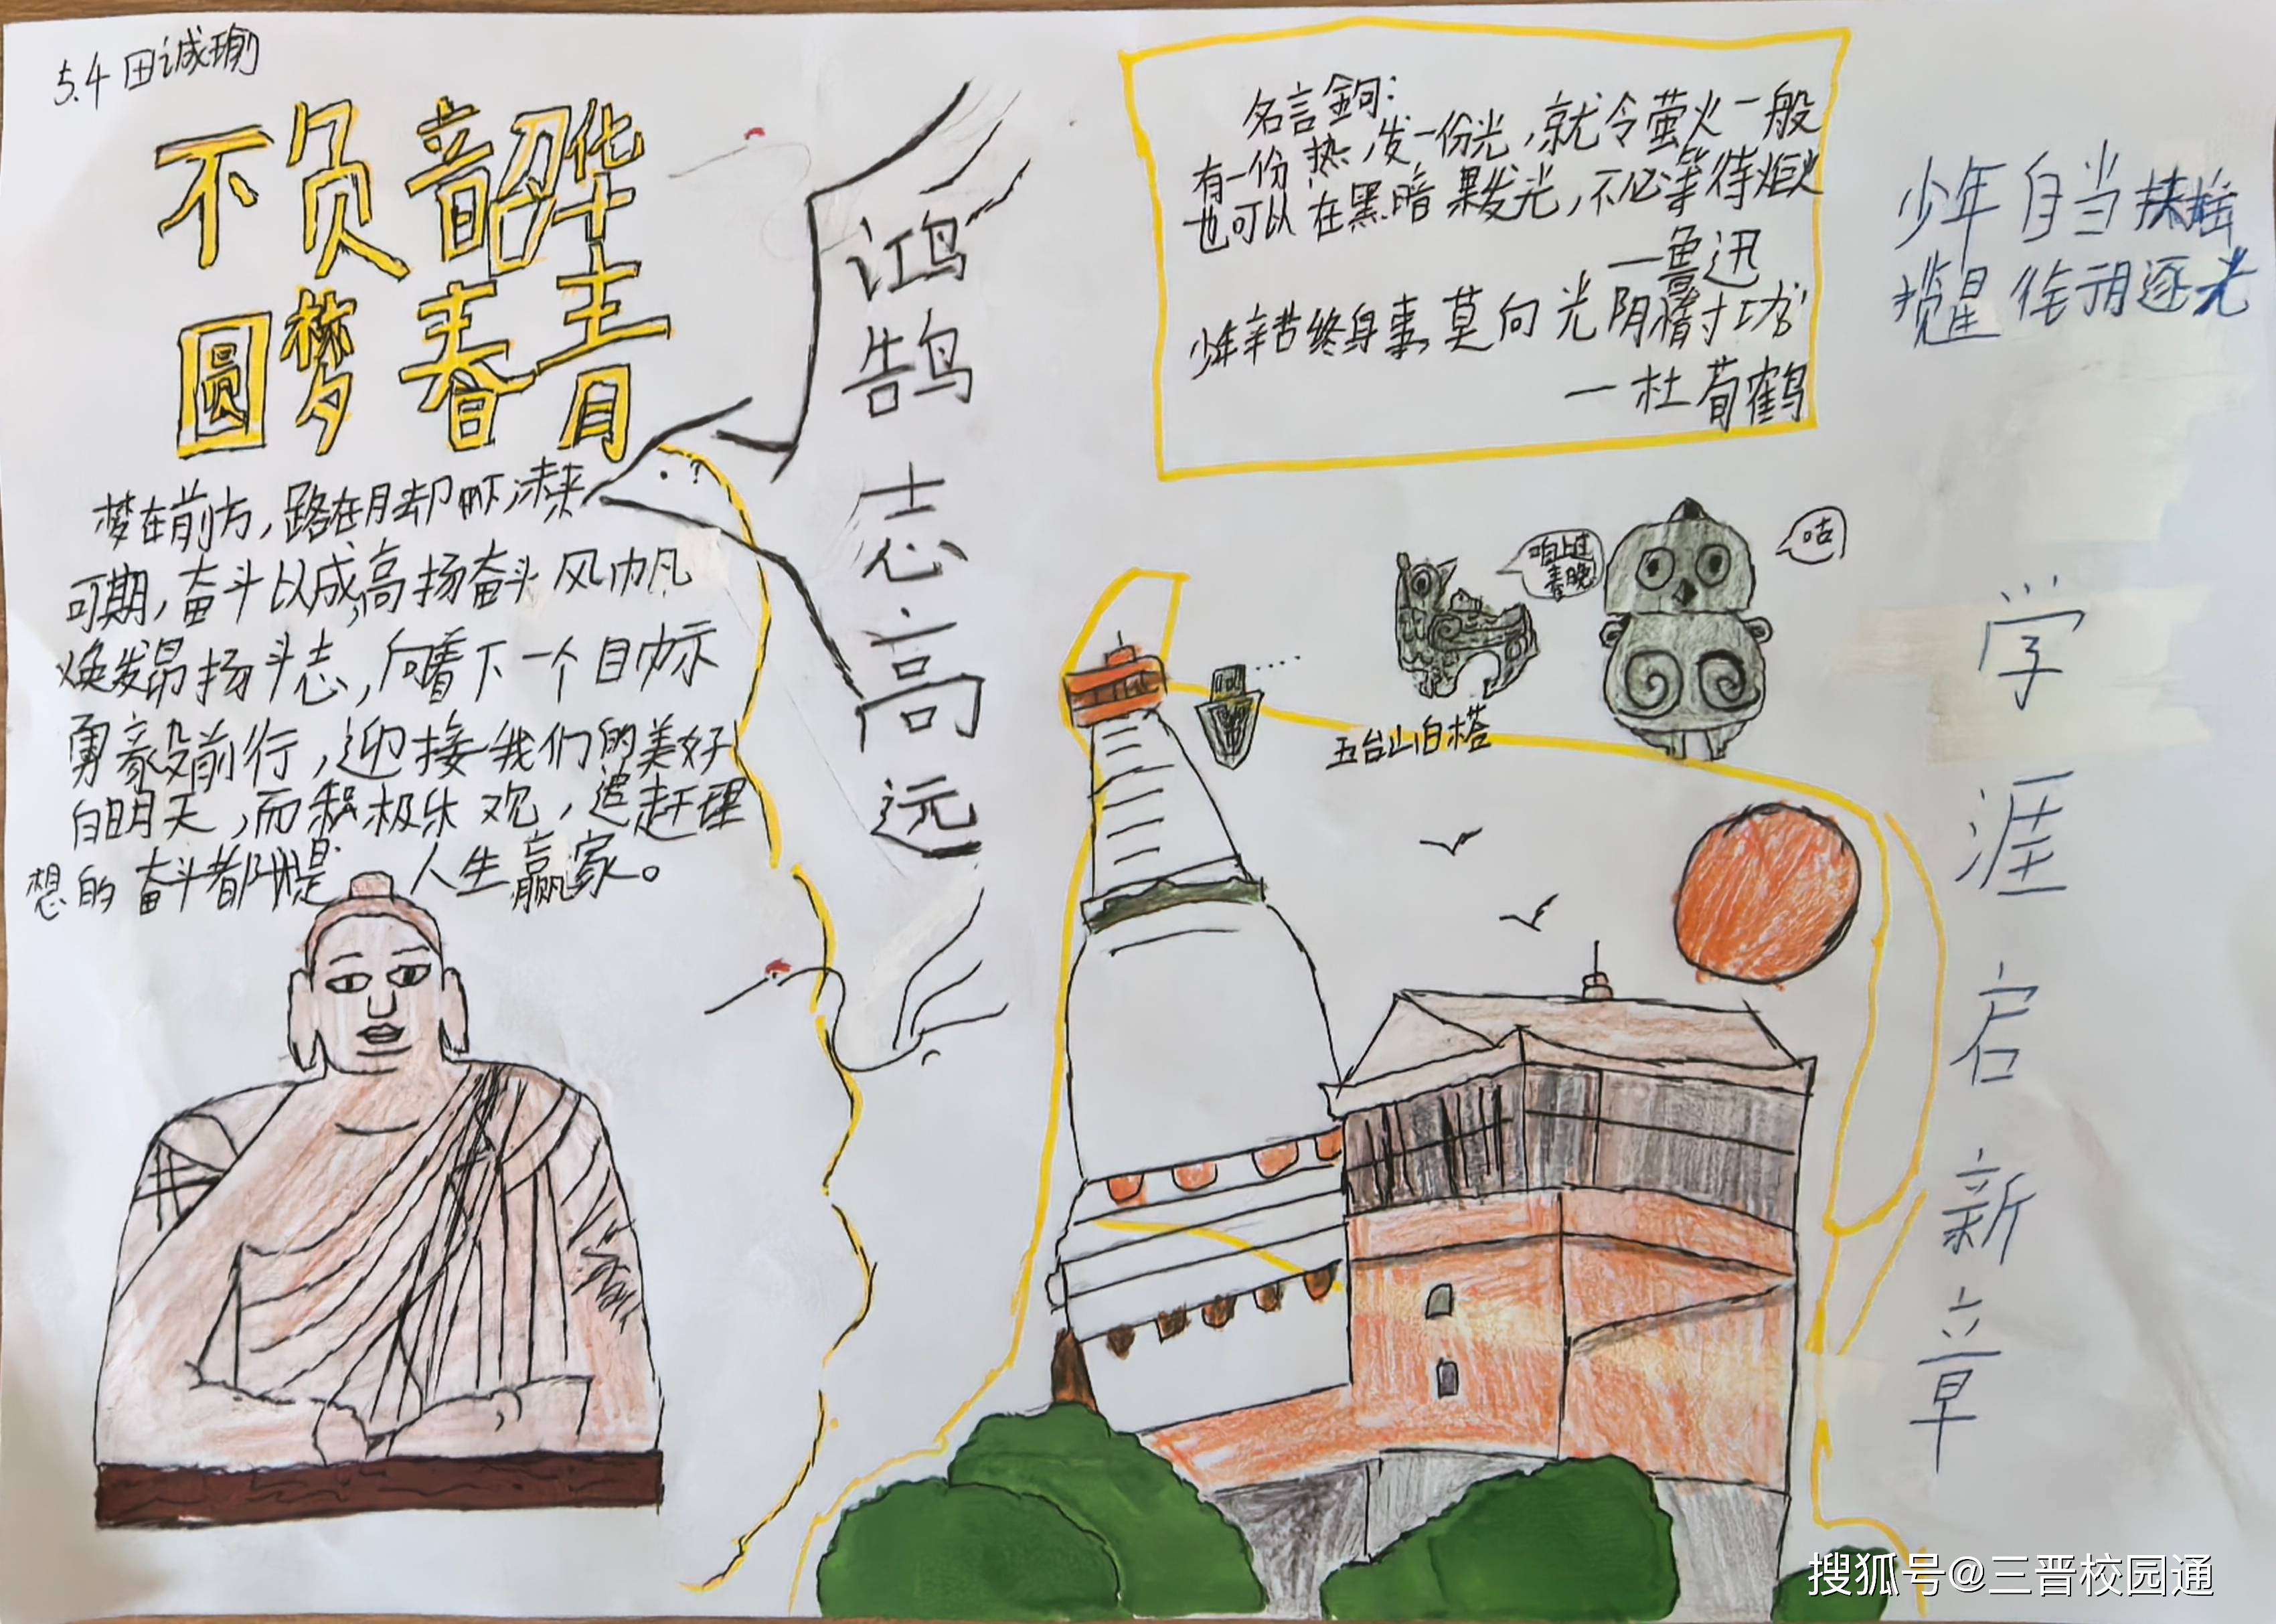 5.4 田诚瑜
不负韶华
圆梦青春
梦在前方，路在脚下，未来
可期，奋斗以成，高扬奋斗风帆
焕发昂扬斗志，向着下一个目标
勇毅前行，迎接我们的美好
明天，而积极乐观，追赶理
想的奋斗都是人生赢家。
鸿鹄志高远
名言金句：
有一份热，发一份光，就令萤火一般
也可以在黑暗里发光，不必等待炬火
—鲁迅
少年辛苦终身事，莫向光阴惰寸功
—杜荀鹤
少年自当扶摇
揽星衔月逐光
咱上过
春晚
咕
五台山白塔
学涯启新章
搜狐号@三晋校园通